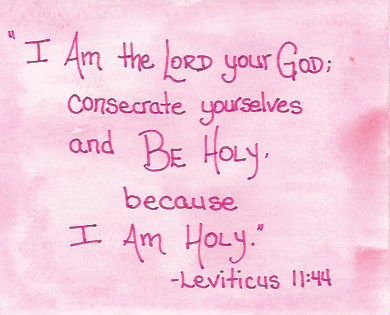 "I Am the LORD your GOD;
consecrate yourselves
and BE HOLY,
because
I Am HOLY."
-Leviticus 11:44